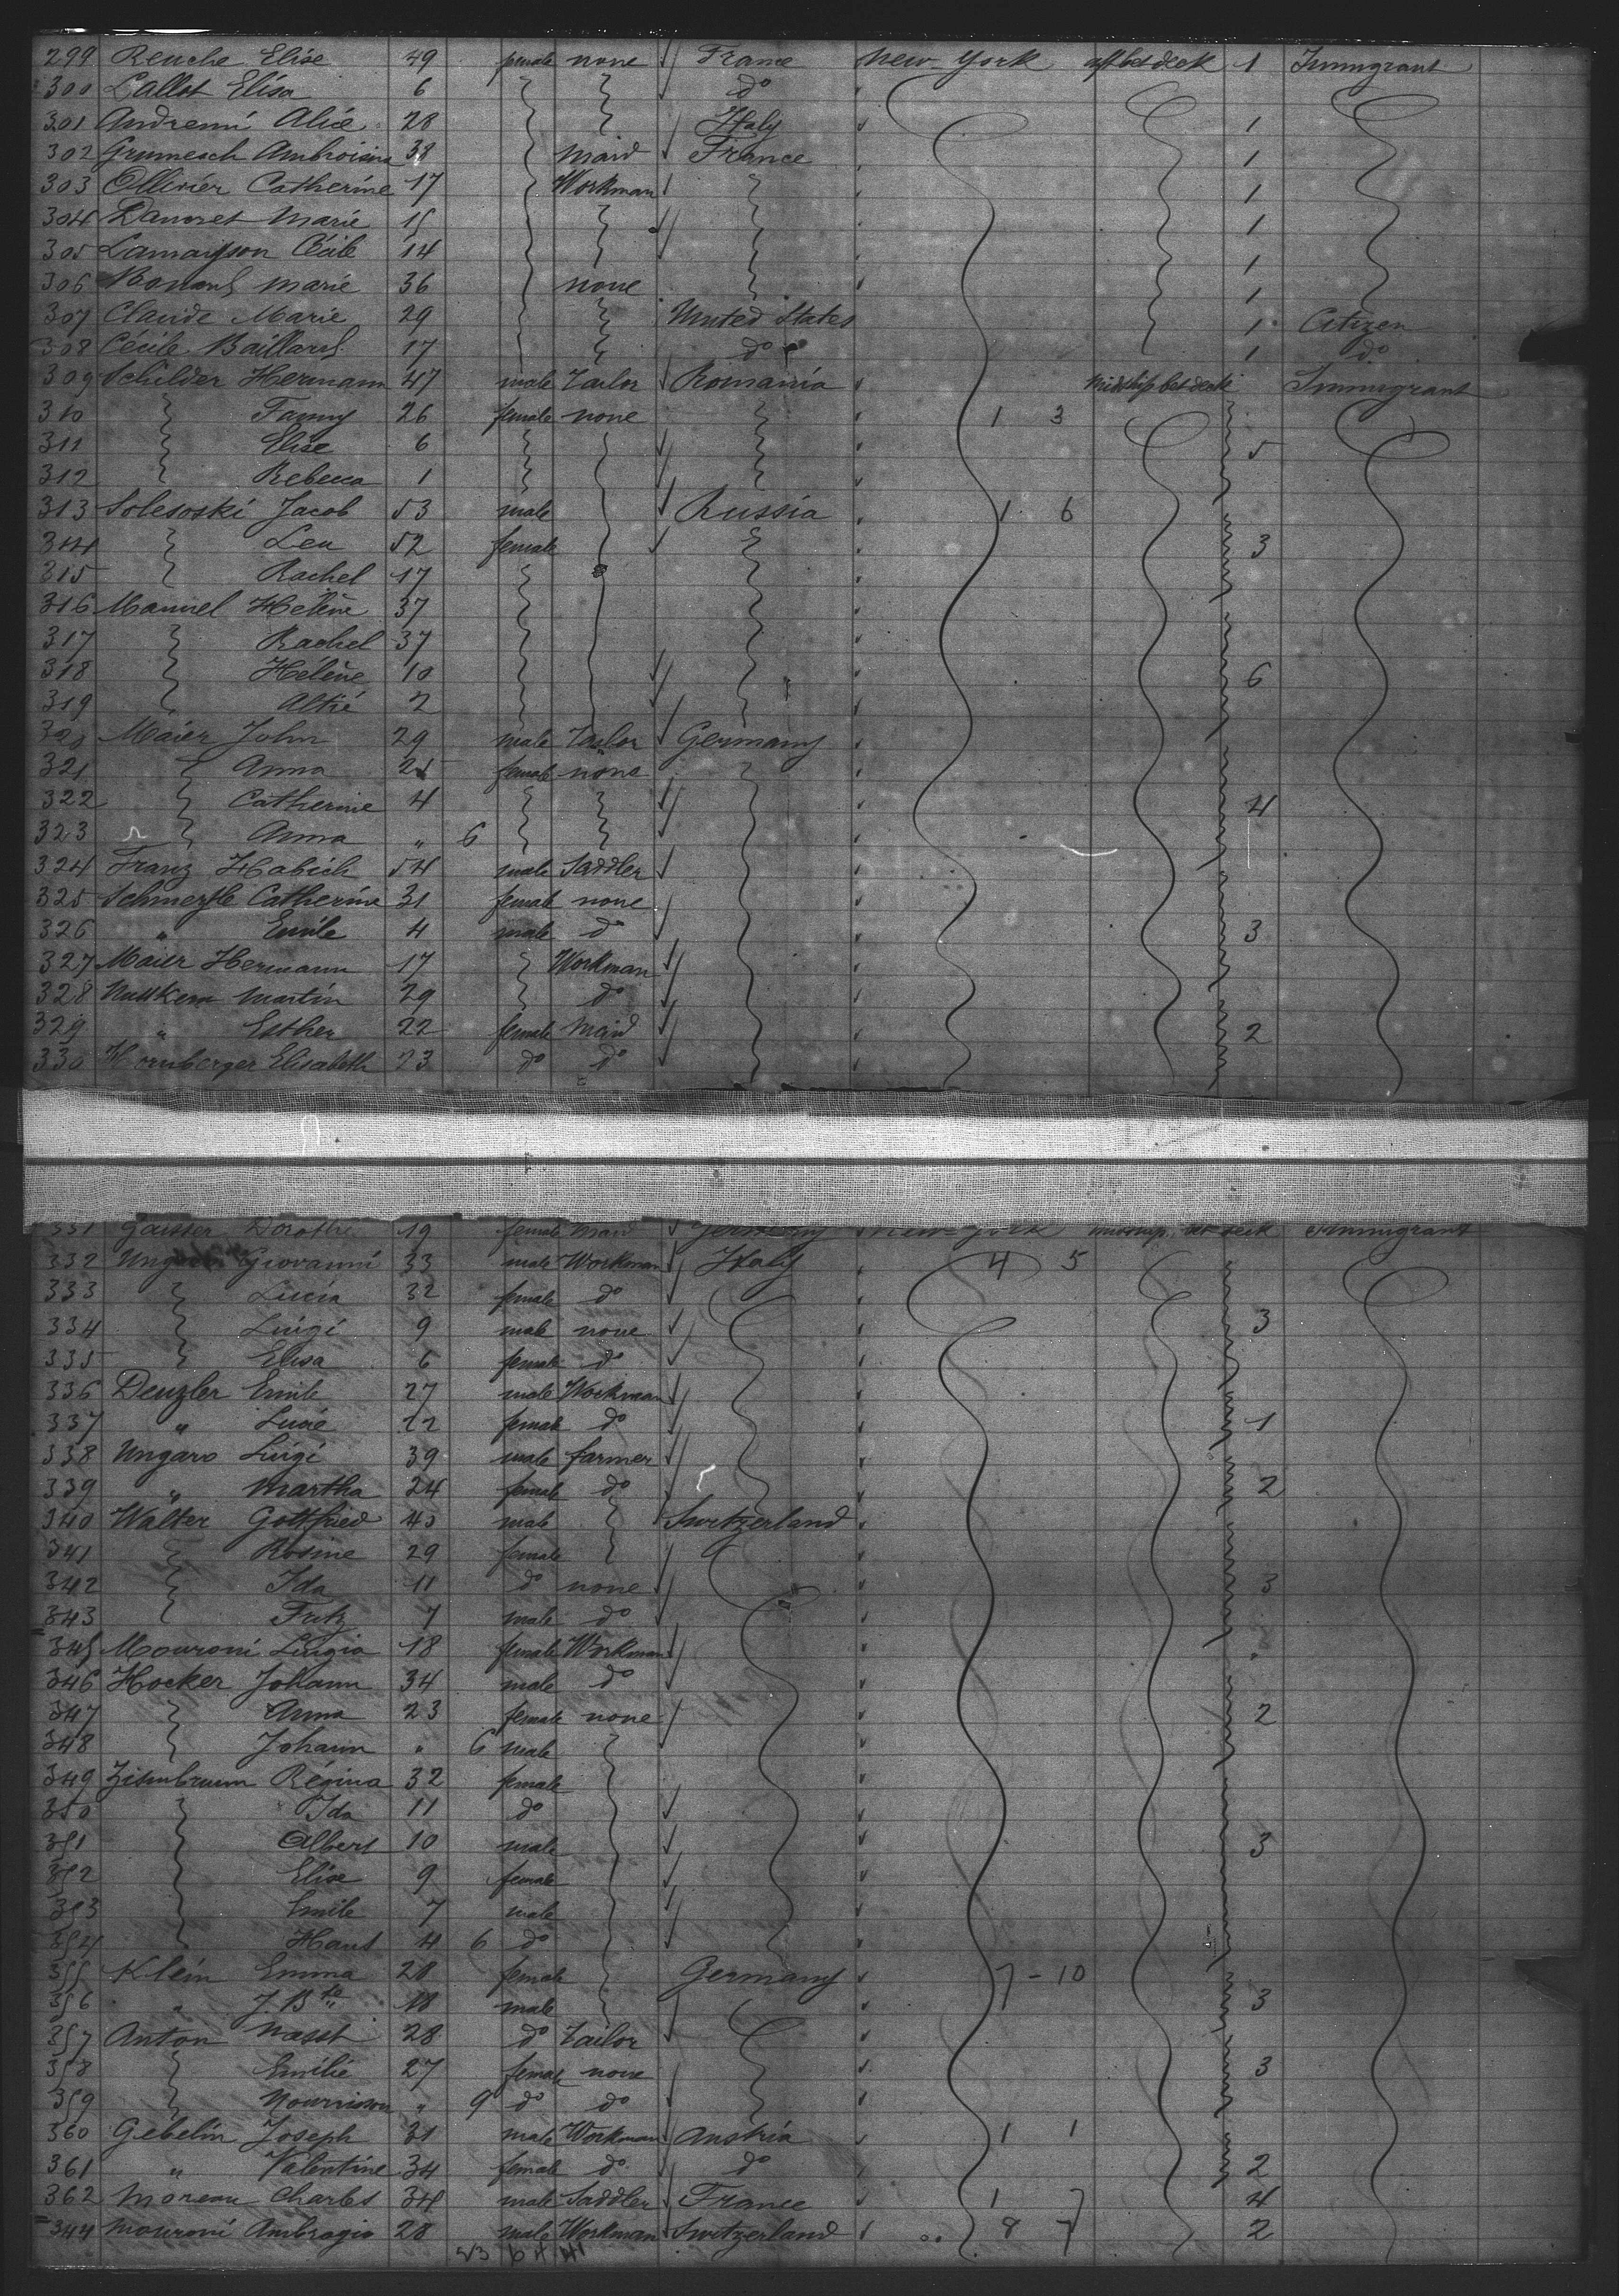 299 Reuche Elise 49 female none France New-York aft bet deck 1 Immigrant
300 Lallot Elisa 6 do
301 Andremi Alice 28 Italy 1
302 Grumesch Ambroisine 38 maid France 1
303 Ollivier Catherine 17 Workman 1
304 Dancret Marie 15 1
305 Lamaysson Cécile 14 1
306 marie 36 none 1
307 Claude Marie 29 United States 1 Citizen
308 Cécile Baillard 17 do 1 do
309 Schilder Hermann 47 male Tailor Romania midship bet deck Immigrant
310 Fanny 26 female none 1 3
311 Elise 6 5
312 Rebecca 1
313 Solesoski Jacob 53 male Russia 1 6
314 Lea 52 female 3
315 Rachel 17
316 Mannel Hélène 37
317 Rachel 37
318 Hélène 10 6
319 Altié 2
320 Maier John 29 male Tailor Germany
321 Anna 25 female none
322 Catherine 4 4
323 Anna " 6
324 Franz Habich 54 male Saddler
325 Schmerfle Catherine 31 female none
326 " Emile 4 male do 3
327 Maier Hermann 17 Workman
328 Nußkern Martin 29 do
329 " Esther 22 female Maid 2
330 Hornberger Elisabeth 23 do do
331 Gaisser Dorothe 19 female maid Germany New-York midship bet deck Immigrant
332 Ungaro Giovanni 33 male Workman Italy 4 5
333 Lucia 32 female do
334 Luigi 9 male none 3
335 Elisa 6 female do
336 Denzler Emile 27 male Workman
337 " Lucie 22 female do 1
338 Ungaro Luigi 39 male farmer
339 " Martha 24 female do 2
340 Walter Gottfried 40 male Switzerland
341 Rosine 29 female
342 Ida 11 do none 3
343 Fritz 7 male do
345 Mouroni Luigia 18 female Workman
346 Hocker Johann 34 male do
347 Anna 23 female none 2
348 Johann " 6 male
349 Zisenbrunn Régina 32 female
350 Ida 11 do
351 Albert 10 male 3
352 Elise 9 female
353 Emile 7 male
354 Hans 4 6 do
355 Klein Emma 28 female Germany 7 - 10
356 " J. Bte 18 male 3
357 Anton Nassi 28 do Tailor
358 Emilie 27 female none 3
359 Nourrisson " 9 do do
360 Gebelin Joseph 31 male Workman Austria 1 1
361 " Valentine 34 female do do 2
362 Moreau Charles 34 male Saddler France 1 7 4
344 Mouroni Ambragio 28 male Workman Switzerland 8 7 2
23 64 41